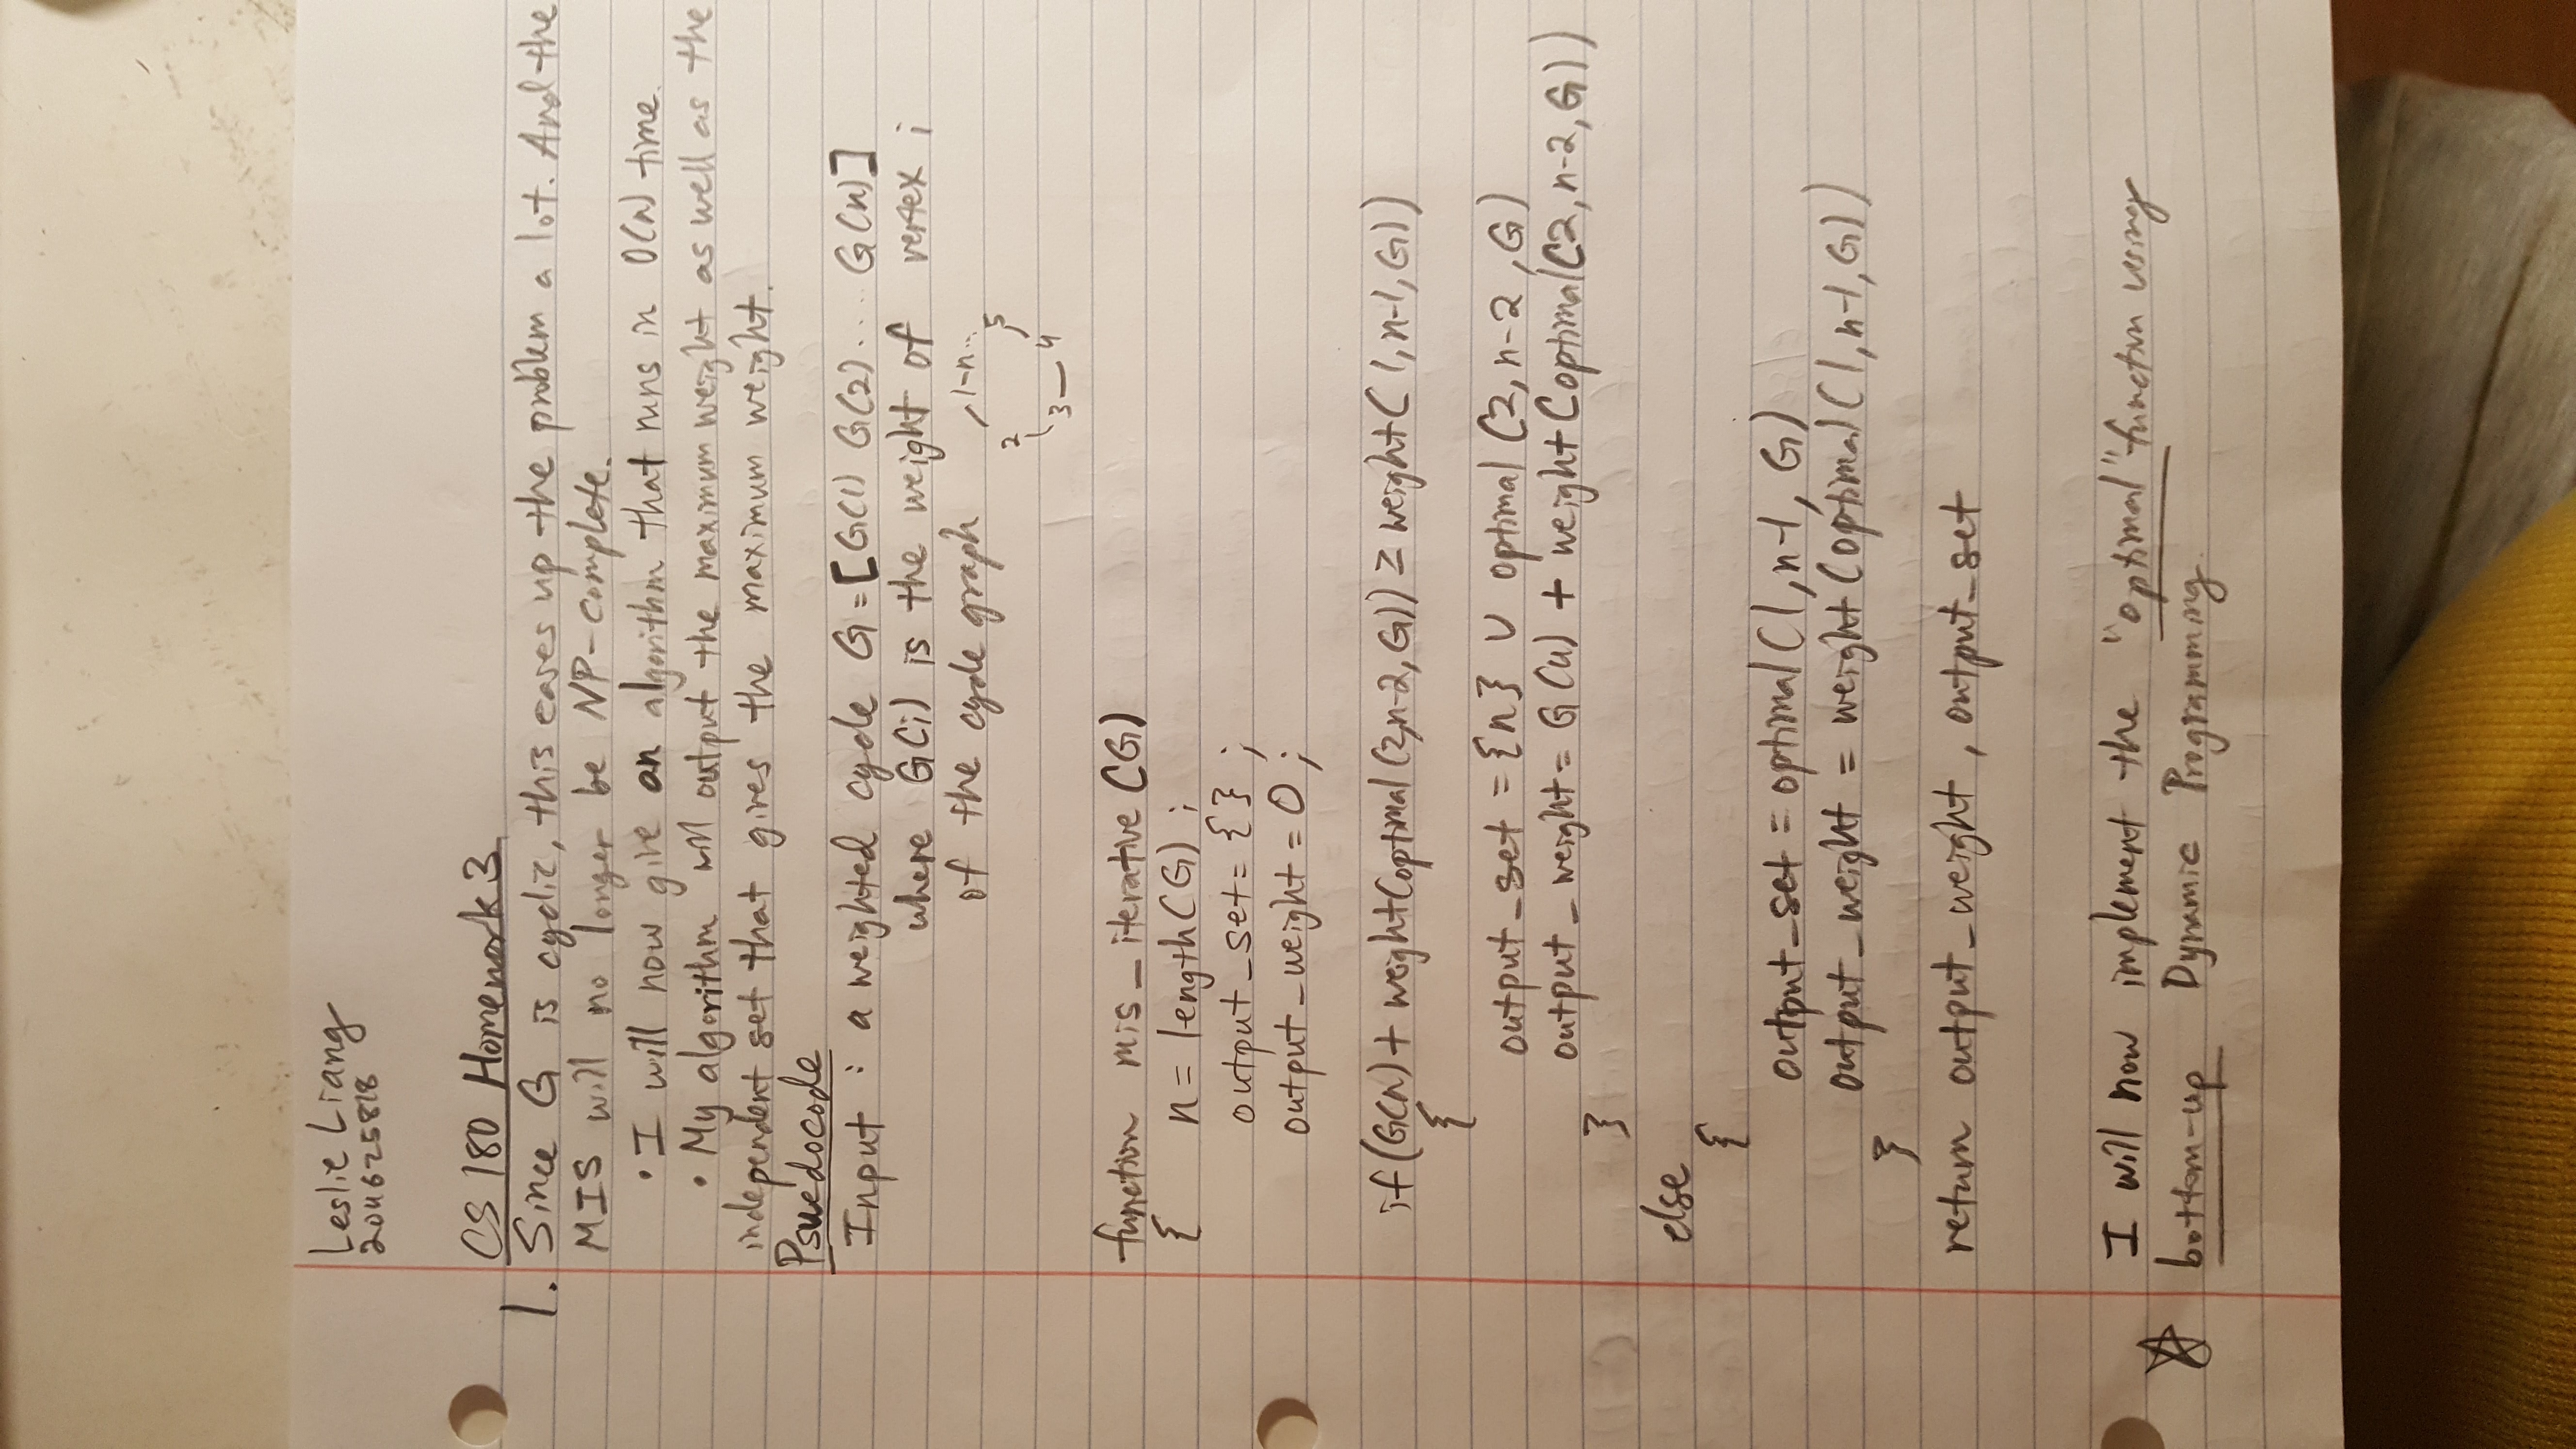 Leslie Liang
204625818
CS 180 Homework 3
1. Since G is cyclic, this eases up the problem a lot. And the
MIS will no longer be NP-complete.
• I will now give an algorithm that runs in O(n) time.
• My algorithm will output the maximum weight as well as the
independent set that gives the maximum weight.
Psuedocode
Input : a weighted cycle G=[G(1) G(2)... G(n)]
where G(i) is the weight of vertex i
of the cycle graph
1-n..
2 5
3 — 4
function mis_iterative (G)
{ n = length(G) ;
output_set= { } ;
output_weight = 0 ;
if (G(n) + weight(optimal (2,n-2, G)) ≥ weight( 1, n-1, G))
{
output_set = {n} ∪ optimal (2, n-2, G)
output_weight = G(n) + weight(optimal(2, n-2, G))
}
else
{
output_set = optimal(1, n-1, G)
output_weight = weight (optimal(1, n-1, G))
}
return output_weight, output_set
I will now implement the "optimal" function using
☆ bottom-up Dynamic Programming.